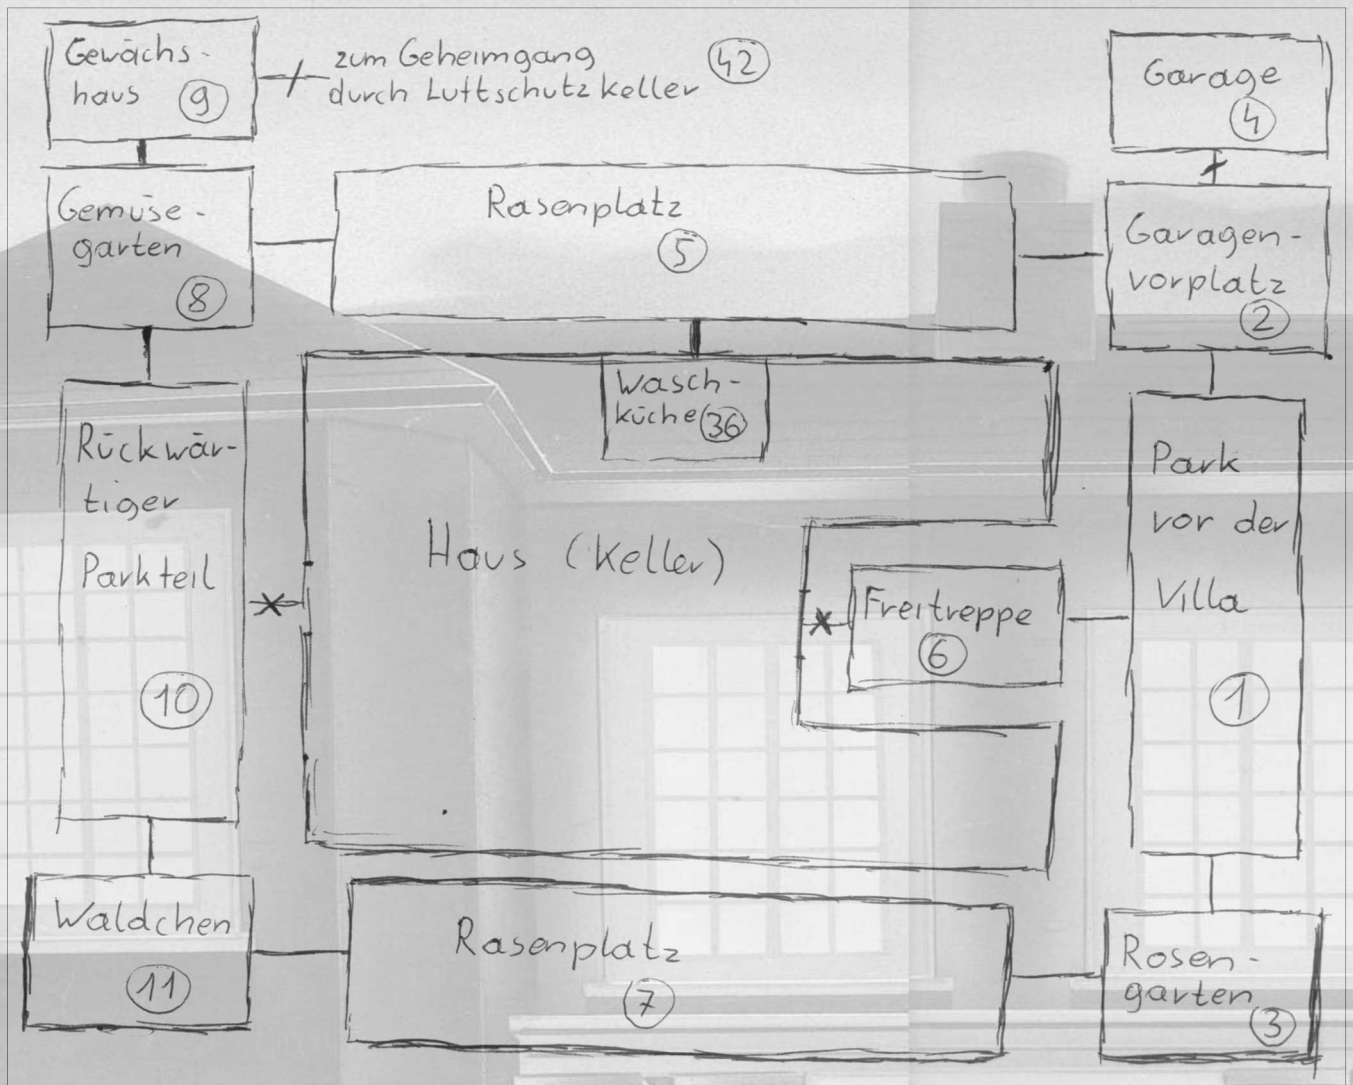 Gewächs-
haus 9
zum Geheimgang
durch Luftschutzkeller 42
Garage
4
Gemüse-
garten
8
Rasenplatz
5
Garagen-
vorplatz
2
Wasch-
küche 36
Rückwär-
tiger
Parkteil
10
Haus (Keller)
Freitreppe
6
Park
vor der
Villa
1
Wäldchen
11
Rasenplatz
7
Rosen-
garten
3